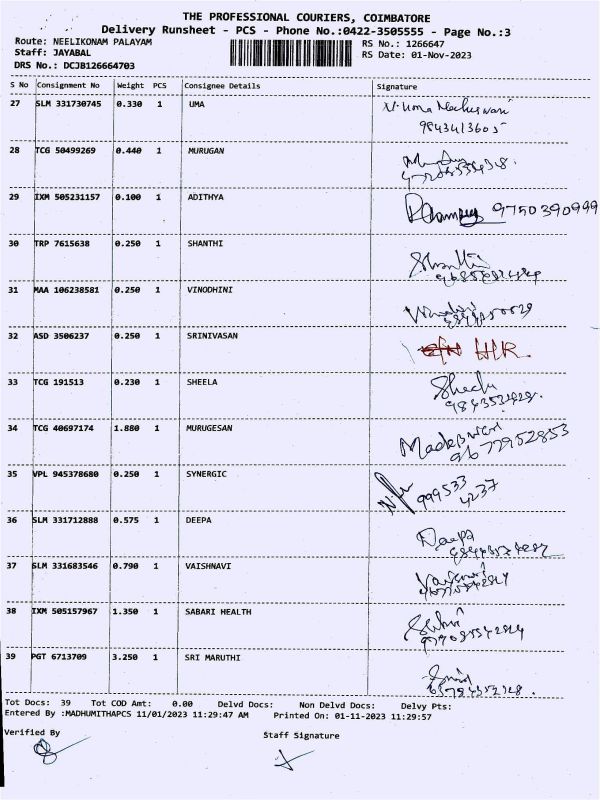 THE PROFESSIONAL COURIERS, COIMBATORE
Delivery Runsheet - PCS - Phone No.:0422-3505555 - Page No.:3
Route: NEELIKONAM PALAYAM
RS No.: 1266647
Staff: JAYABAL
RS Date: 01-Nov-2023
DRS No.: DCJB126664703
S No Consignment No Weight PCS Consignee Details Signature
27 SLM 331730745 0.330 1 UMA
28 TCG 50499269 0.440 1 MURUGAN
29 IXM 505231157 0.100 1 ADITHYA 9750390999
30 TRP 7615638 0.250 1 SHANTHI
31 MAA 106238581 0.250 1 VINODHINI
32 ASD 3506237 0.250 1 SRINIVASAN
33 TCG 191513 0.230 1 SHEELA
34 TCG 40697174 1.880 1 MURUGESAN
35 VPL 945378680 0.250 1 SYNERGIC
999533
4237
36 SLM 331712888 0.575 1 DEEPA Deepa
37 SLM 331683546 0.790 1 VAISHNAVI
38 IXM 505157967 1.350 1 SABARI HEALTH
39 PGT 6713709 3.250 1 SRI MARUTHI
Tot Docs: 39 Tot COD Amt: 0.00 Delvd Docs: Non Delvd Docs: Delvy Pts:
Entered By :MADHUMITHAPCS 11/01/2023 11:29:47 AM Printed On: 01-11-2023 11:29:57
Verified By Staff Signature